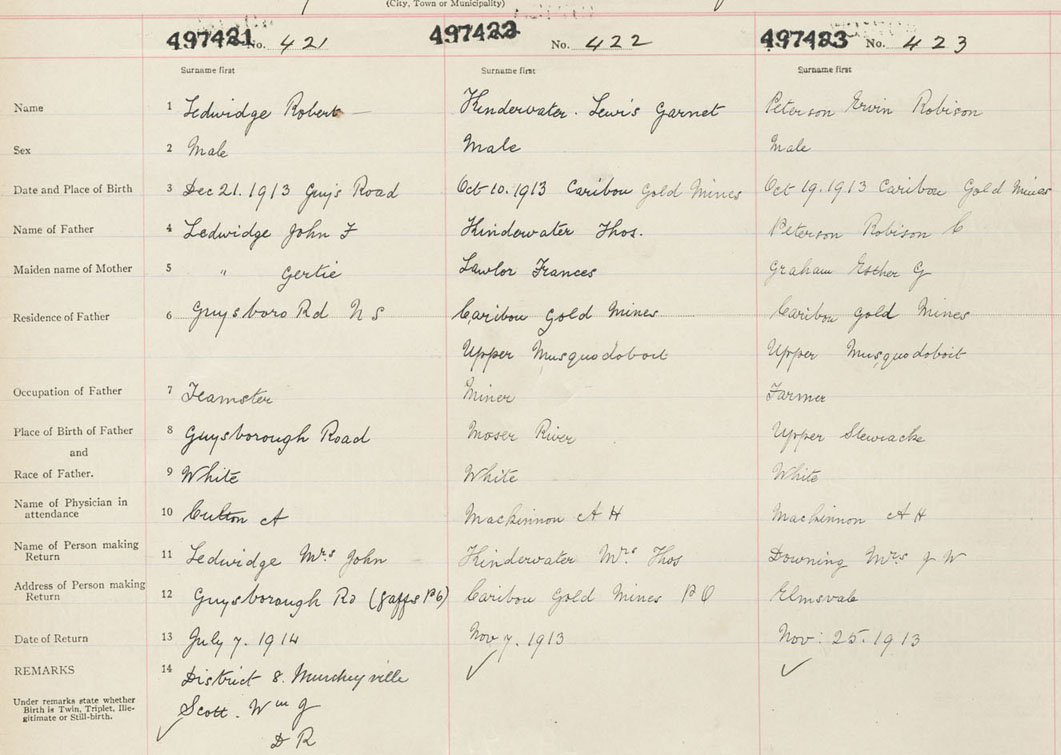 (City, Town or Municipality)
497421 No. 421 497422 No. 422 497423 No. 423
Surname first Surname first Surname first
Name 1 Ledwidge Robert Hinderwater. Lewis Garnet Peterson Ervin Robison
Sex 2 Male Male Male
Date and Place of Birth 3 Dec 21. 1913 Guy's Road Oct 10. 1913 Caribou Gold Mines Oct 19. 1913 Caribou Gold Mines
Name of Father 4 Ledwidge John F Hinderwater Thos. Peterson Robison C
Maiden name of Mother 5 " Gertie Lawlor Frances Graham Esther G
Residence of Father 6 Guysboro Rd N S Caribou Gold Mines Caribou Gold Mines
Upper Musquodoboit Upper Musquodoboit
Occupation of Father 7 Teamster Miner Farmer
Place of Birth of Father 8 Guysborough Road Moser River Upper Stewiacke
and
Race of Father. 9 White White White
Name of Physician in
attendance 10 A Mackinnon A H Mackinnon A H
Name of Person making
Return 11 Ledwidge Mrs John Hinderwater Mrs Thos Downing Mrs J W
Address of Person making
Return 12 Guysborough Rd Caribou Gold Mines P O Elmsvale
Date of Return 13 July 7. 1914 Nov 7. 1913 Nov: 25. 1913
REMARKS 14 District 8.
Under remarks state whether
Birth is Twin, Triplet, Ille-
gitimate or Still-birth.
Scott. Wm J
D R